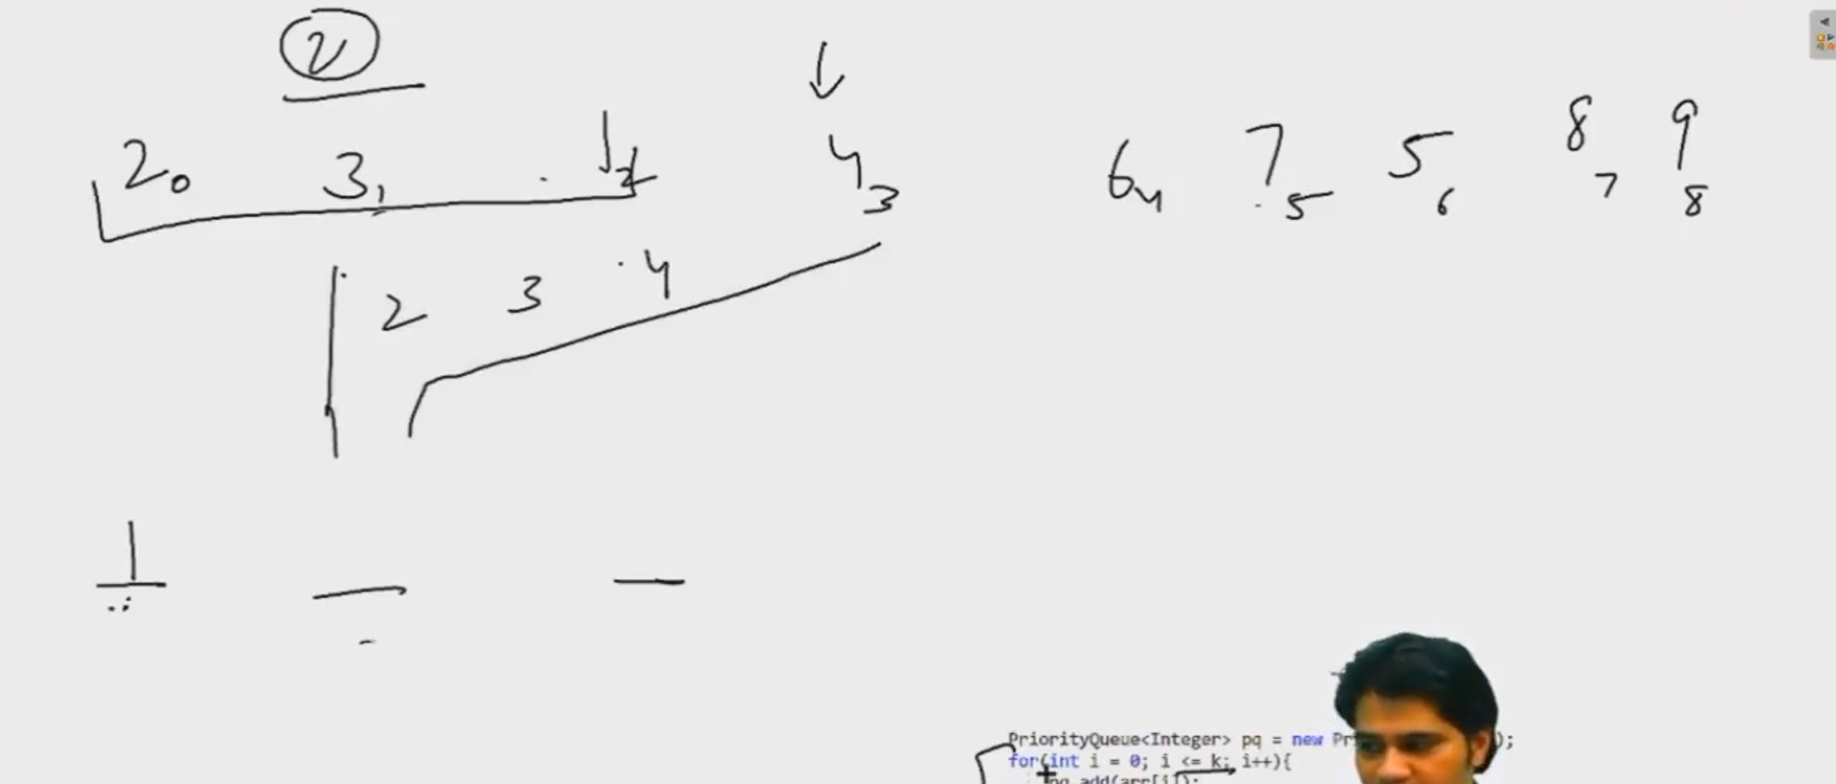 2
2₀ 3₁ 1₂ 4₃ 6₄ 7₅ 5₆ 8₇ 9₈
2 3 4
1
PriorityQueue<Integer> pq = new Pr );
for(int i = 0; i <= k; i++){
pq.add(arr[i]);